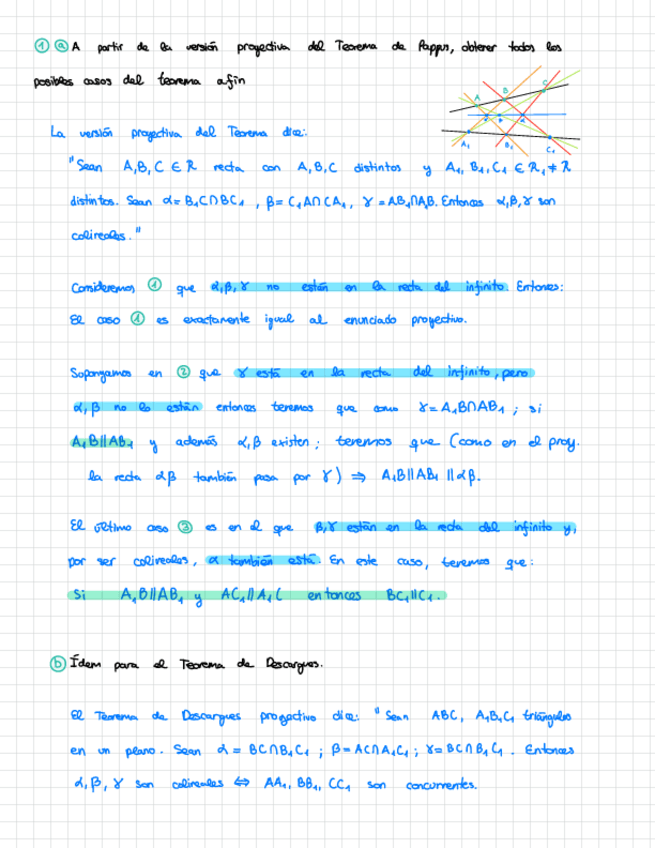 ① ⓐ A partir de la versión proyectiva del Teorema de Pappus, obtener todos los
posibles casos del teorema afín
A B C
A₁ B₁ C₁
La versión proyectiva del Teorema dice:
"Sean A,B,C ∈ R recta con A,B,C distintos y A₁, B₁, C₁ ∈ R₁ ≠ R
distintos. Sean α = B₁C∩BC₁ , β = C₁A∩CA₁, γ = AB₁∩A₁B. Entonces α,β,γ son
colineales."
Consideremos ① que α,β,γ no están en la recta del infinito. Entonces:
El caso ① es exactamente igual al enunciado proyectivo.
Supongamos en ② que γ está en la recta del infinito, pero
α,β no lo están entonces tenemos que como γ = A₁B∩AB₁ ; si
A₁B||AB₁ y además α,β existen ; tenemos que (como en el proy.
la recta αβ también pasa por γ) ⇒ A₁B||AB₁ ||αβ.
El último caso ③ es en el que β,γ están en la recta del infinito y,
por ser colineales, α también está. En este caso, tenemos que:
Si A₁B||AB₁ y AC₁||A₁C entonces BC₁||C₁.
ⓑ Ídem para el Teorema de Descargues.
El Teorema de Descargues proyectivo dice: "Sean ABC, A₁B₁C₁ triángulos
en un plano. Sean α = BC∩B₁C₁ ; β = AC∩A₁C₁ ; γ = BC∩B₁C₁ . Entonces
α, β, γ son colineales ⇔ AA₁, BB₁, CC₁ son concurrentes.